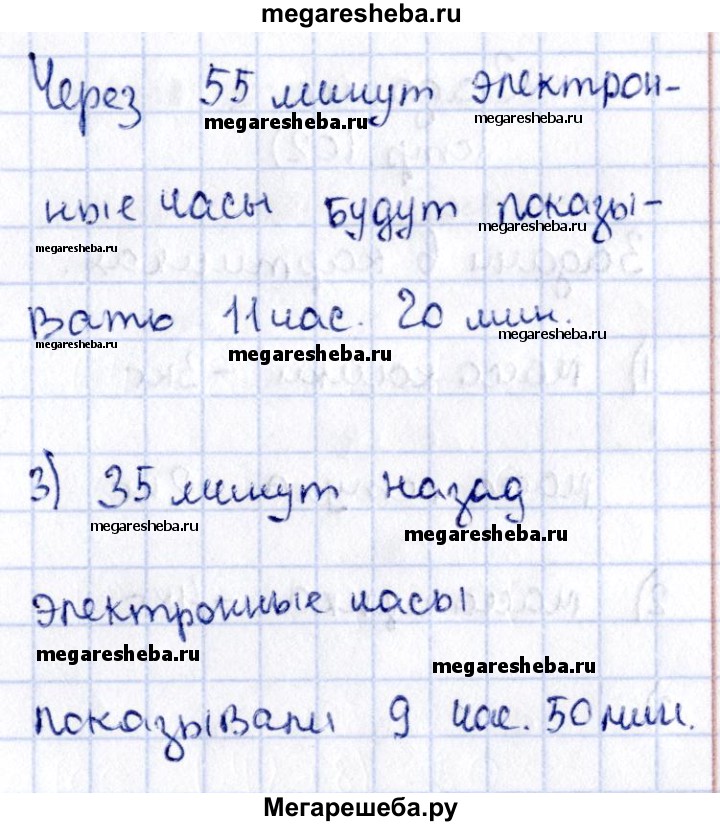 megaresheba.ru
Через 55 минут электрон-
megaresheba.ru
megaresheba.ru
ные часы будут показы-
megaresheba.ru
megaresheba.ru
вать 11 час. 20 мин.
megaresheba.ru
megaresheba.ru
megaresheba.ru
3) 35 минут назад
megaresheba.ru
megaresheba.ru
электронные часы
megaresheba.ru
megaresheba.ru
показывали 9 час. 50 мин.
Мегарешеба.ру